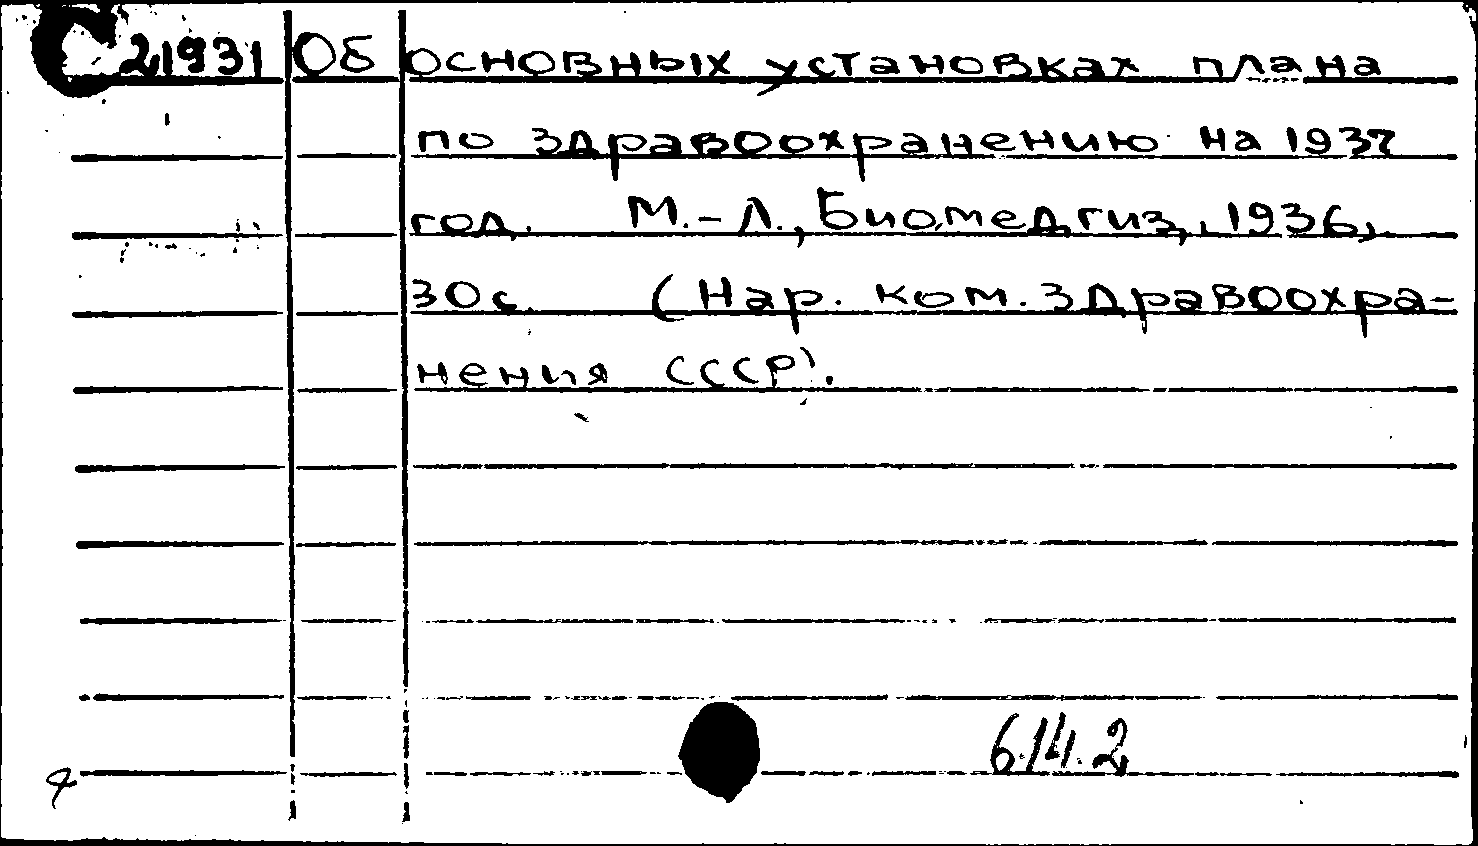 С21931 Об основных установках плана
по здравоохранению на 1937
год. М.-Л., Биомедгиз, 1936,
30с. (Нар. ком. здравоохра-
нения СССР).
614.2